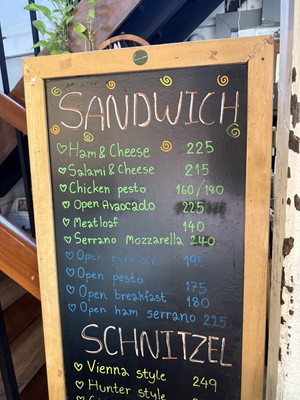 SANDWICH
Ham & Cheese 225
Salami & Cheese 215
Chicken pesto 160/190
Open Avacado 225
Meatloaf 140
Serrano Mozzarella 240
Open 195
Open pesto 175
Open breakfast 180
Open ham serrano 225
SCHNITZEL
Vienna style 249
Hunter style